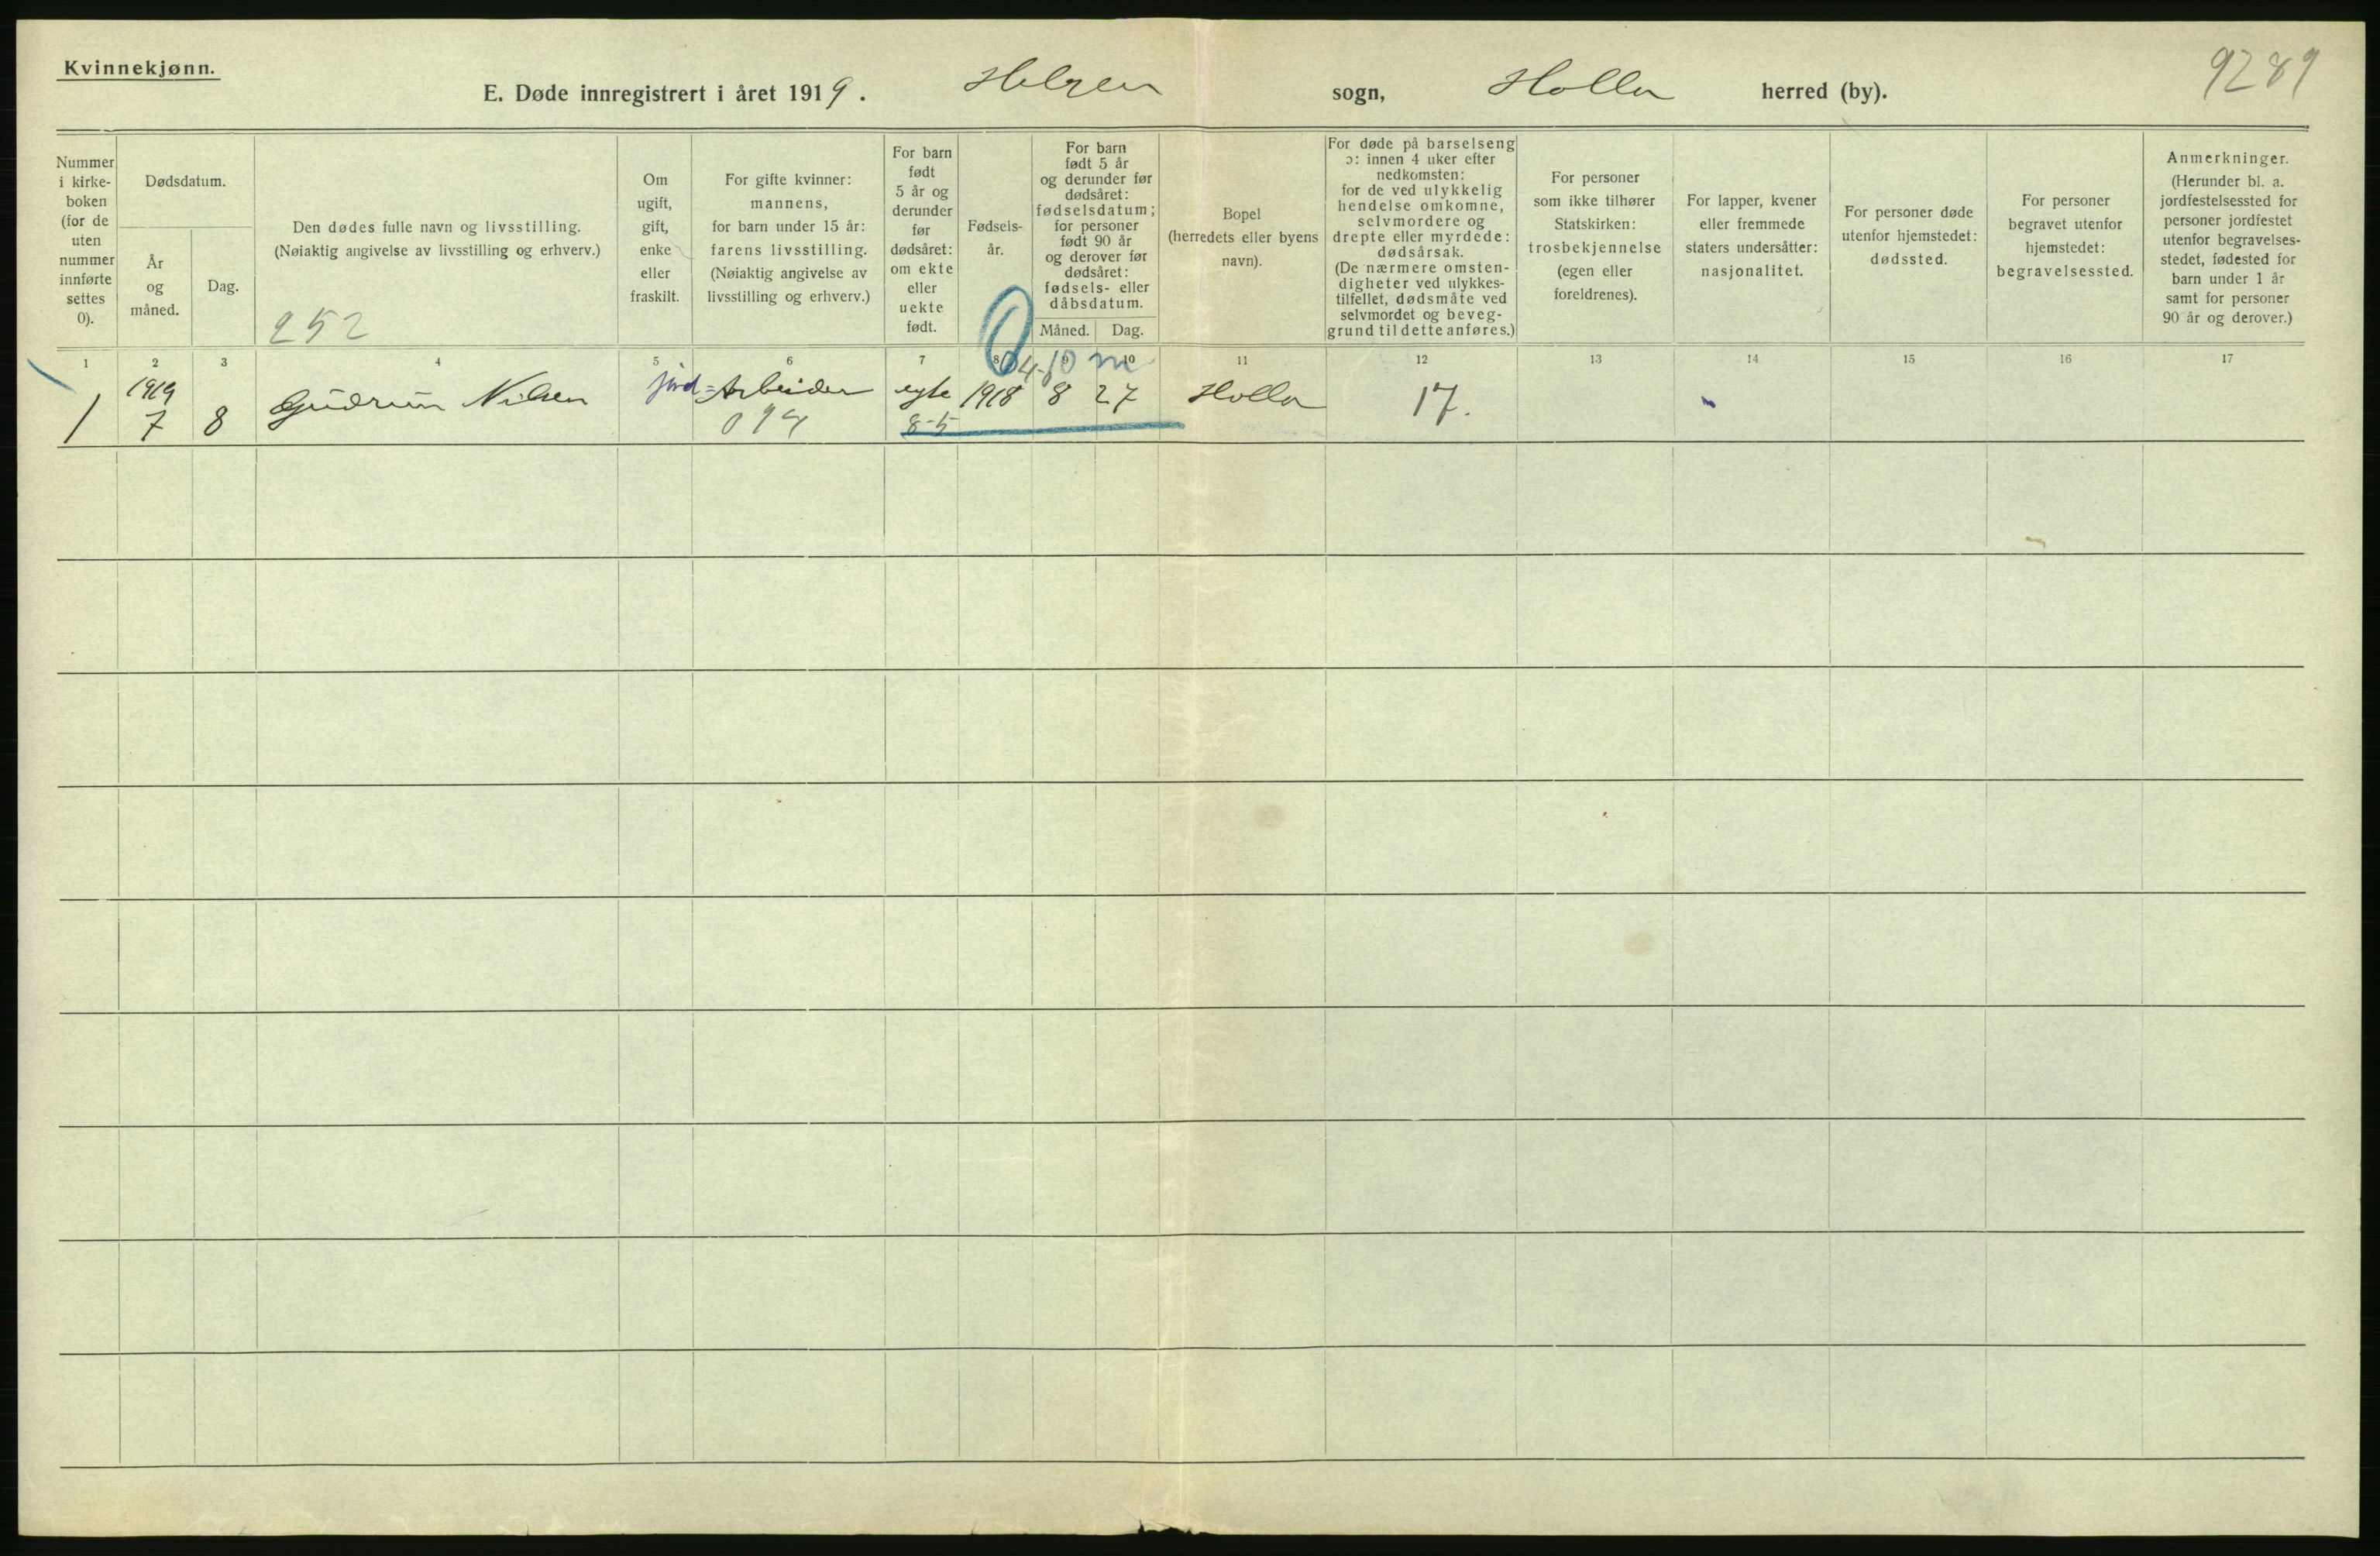 Kvinnekjønn.
E. Døde innregistrert i året 1919. Helgen sogn, Holla herred (by).
9289
Nummer i kirke-boken (for de uten nummer innførte settes 0).
Dødsdatum.
År og måned.
Dag.
Den dødes fulle navn og livsstilling.
(Nøiaktig angivelse av livsstilling og erhverv.)
252
Om ugift, gift, enke eller fraskilt.
For gifte kvinner: mannens, for barn under 15 år: farens livsstilling. (Nøiaktig angivelse av livsstilling og erhverv.)
For barn født 5 år og derunder før dødsåret: om ekte eller uekte født.
Fødsels-år.
For barn født 5 år og derunder før dødsåret: fødselsdatum; for personer født 90 år og derover før dødsåret: fødsels- eller dåbsdatum.
Måned. Dag.
Bopel (herredets eller byens navn).
For døde på barselseng ɔ: innen 4 uker efter nedkomsten: for de ved ulykkelig hendelse omkomne, selvmordere og drepte eller myrdede: dødsårsak. (De nærmere omsten-digheter ved ulykkes-tilfellet, dødsmåte ved selvmordet og beveg-grund til dette anføres.)
For personer som ikke tilhører Statskirken: trosbekjennelse (egen eller foreldrenes).
For lapper, kvener eller fremmede staters undersåtter: nasjonalitet.
For personer døde utenfor hjemstedet: dødssted.
For personer begravet utenfor hjemstedet: begravelsessted.
Anmerkninger. (Herunder bl. a. jordfestelsessted for personer jordfestet utenfor begravelses-stedet, fødested for barn under 1 år samt for personer 90 år og derover.)
1 2 3 4 5 6 7 8 9 10 11 12 13 14 15 16 17
0 10 m
1 1919 7 8 Gudrun Nilsen jord= Arbeider egte 1918 8 27 Holla 17.
8-5